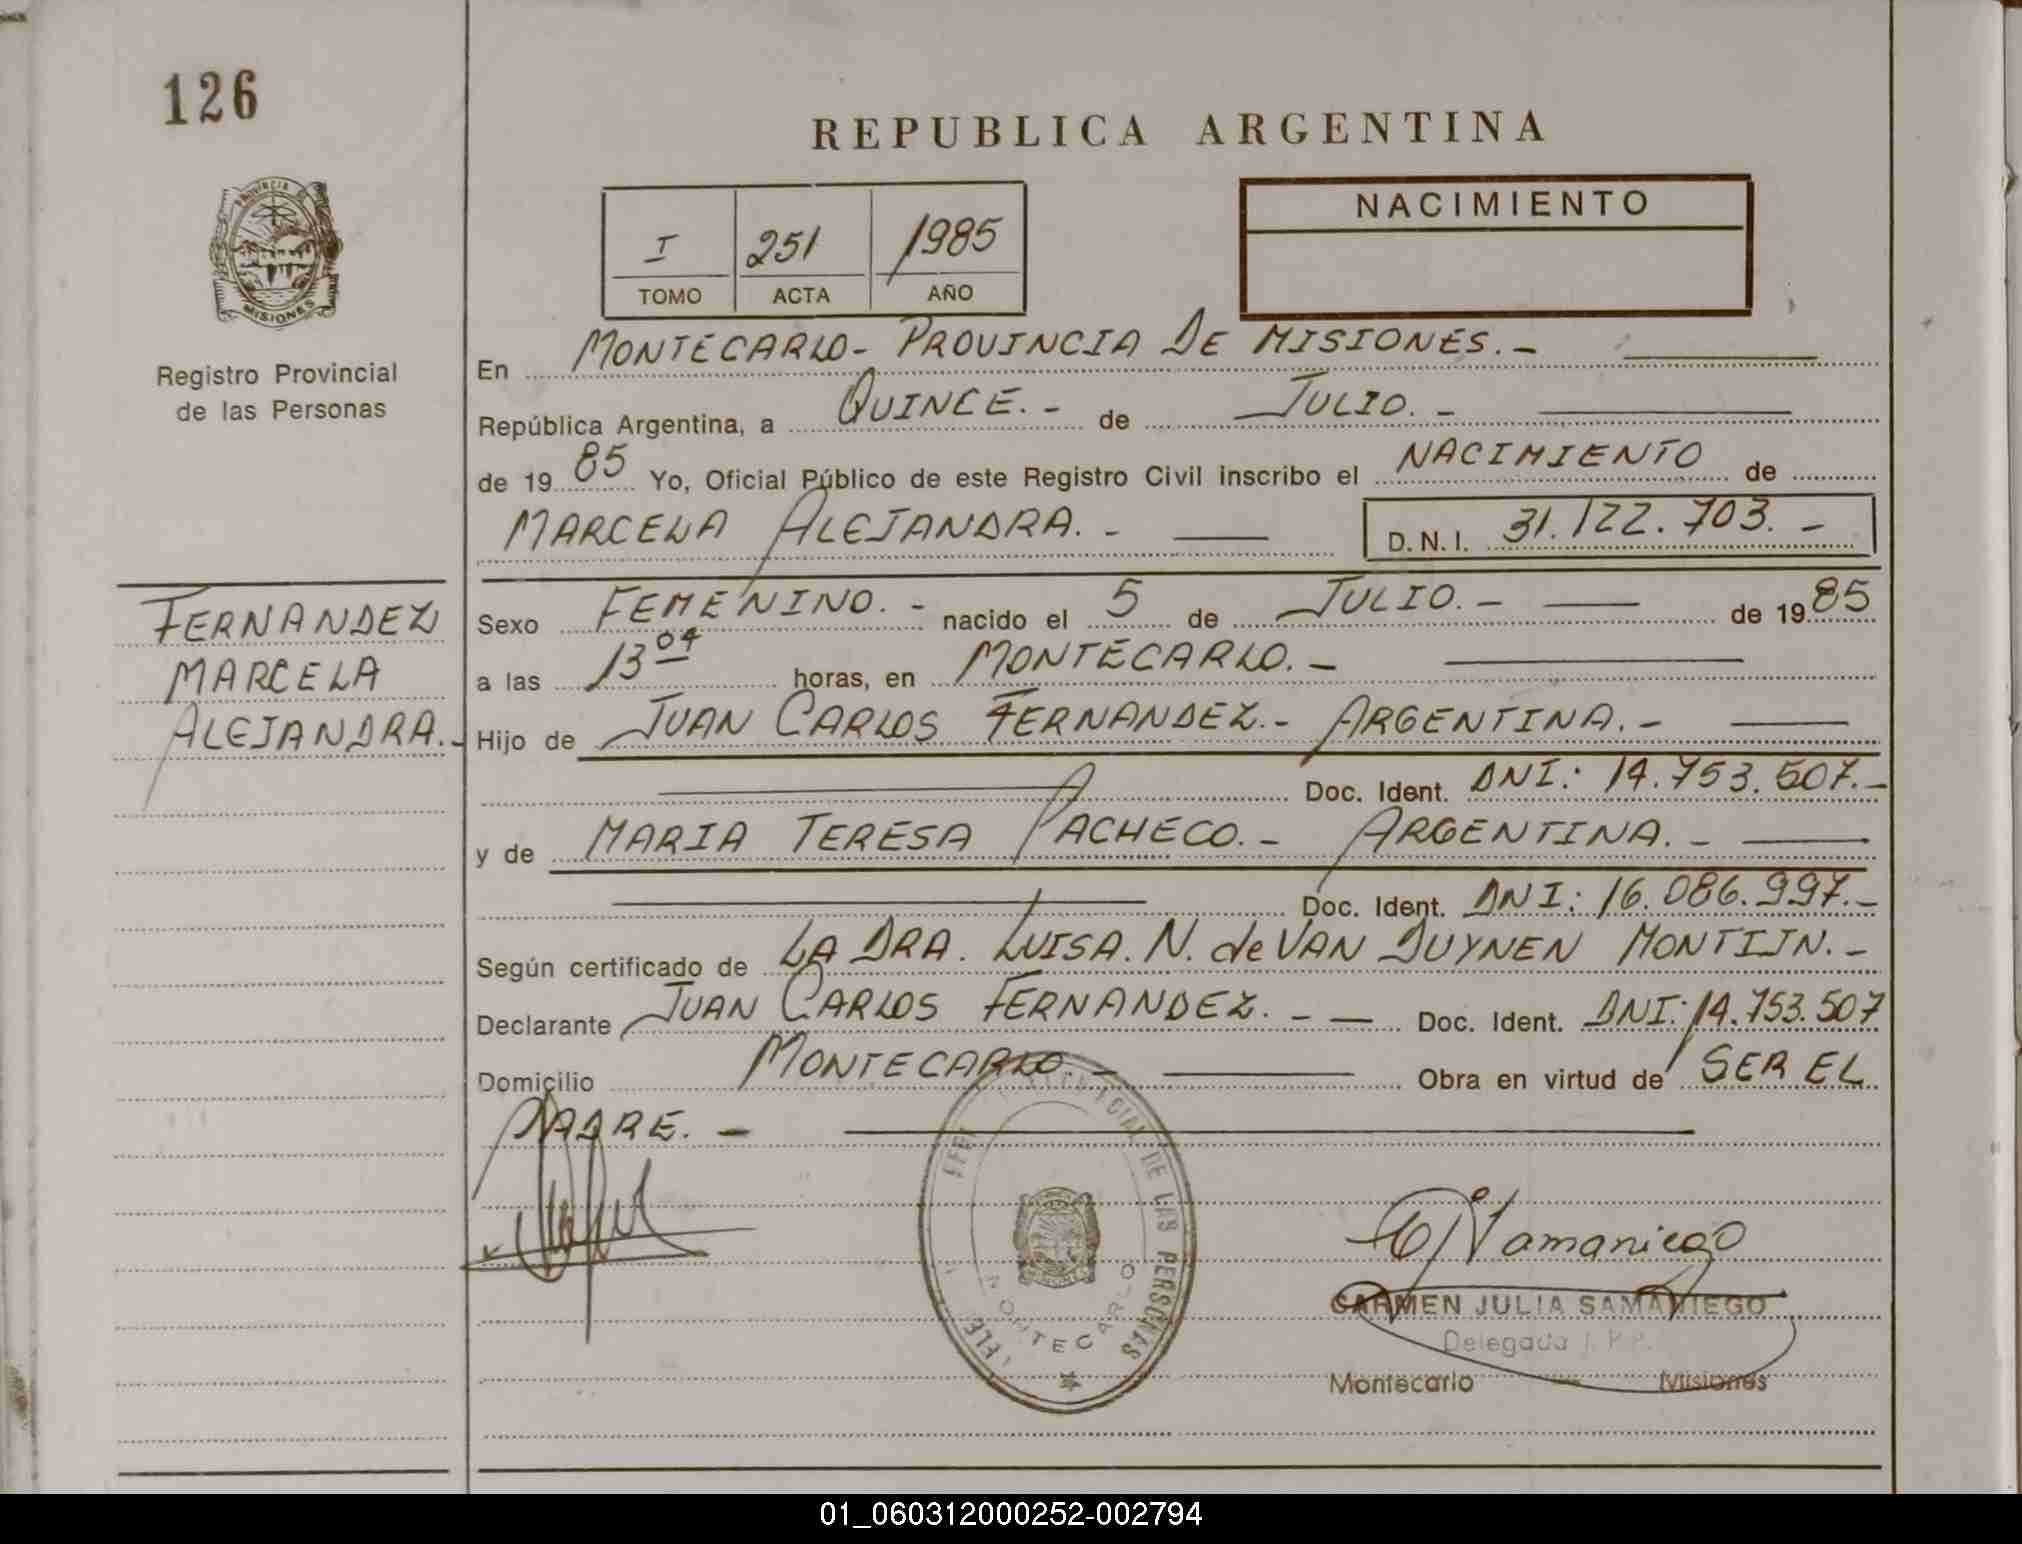 126
REPUBLICA ARGENTINA
PROVINCIA DE
MISIONES
Registro Provincial
de las Personas
I 251 1985
TOMO ACTA AÑO
NACIMIENTO
En MONTECARLO- PROVINCIA DE MISIONES.-
República Argentina, a QUINCE.- de JULIO.-
de 1985 Yo, Oficial Público de este Registro Civil inscribo el NACIMIENTO de
MARCELA ALEJANDRA.- D.N.I. 31.122.703.-
FERNANDEZ
MARCELA
ALEJANDRA.-
Sexo FEMENINO.- nacido el 5 de JULIO.- de 1985
a las 13 04 horas, en MONTECARLO.-
Hijo de JUAN CARLOS FERNANDEZ.- ARGENTINA.-
Doc. Ident. DNI: 14.753.507.-
y de MARIA TERESA PACHECO.- ARGENTINA.-
Doc. Ident. DNI: 16.086.997.-
Según certificado de LA DRA. LUISA. N. de VAN DUYNEN MONTIJN.-
Declarante JUAN CARLOS FERNANDEZ. - - Doc. Ident. DNI: 14.753.507
Domicilio MONTECARLO.- Obra en virtud de SER EL
PADRE.-
DE LAS PERSONAS
MONTECARLO
Samaniego
CARMEN JULIA SAMANIEGO
Delegada
Montecarlo Misiones
01_060312000252-002794